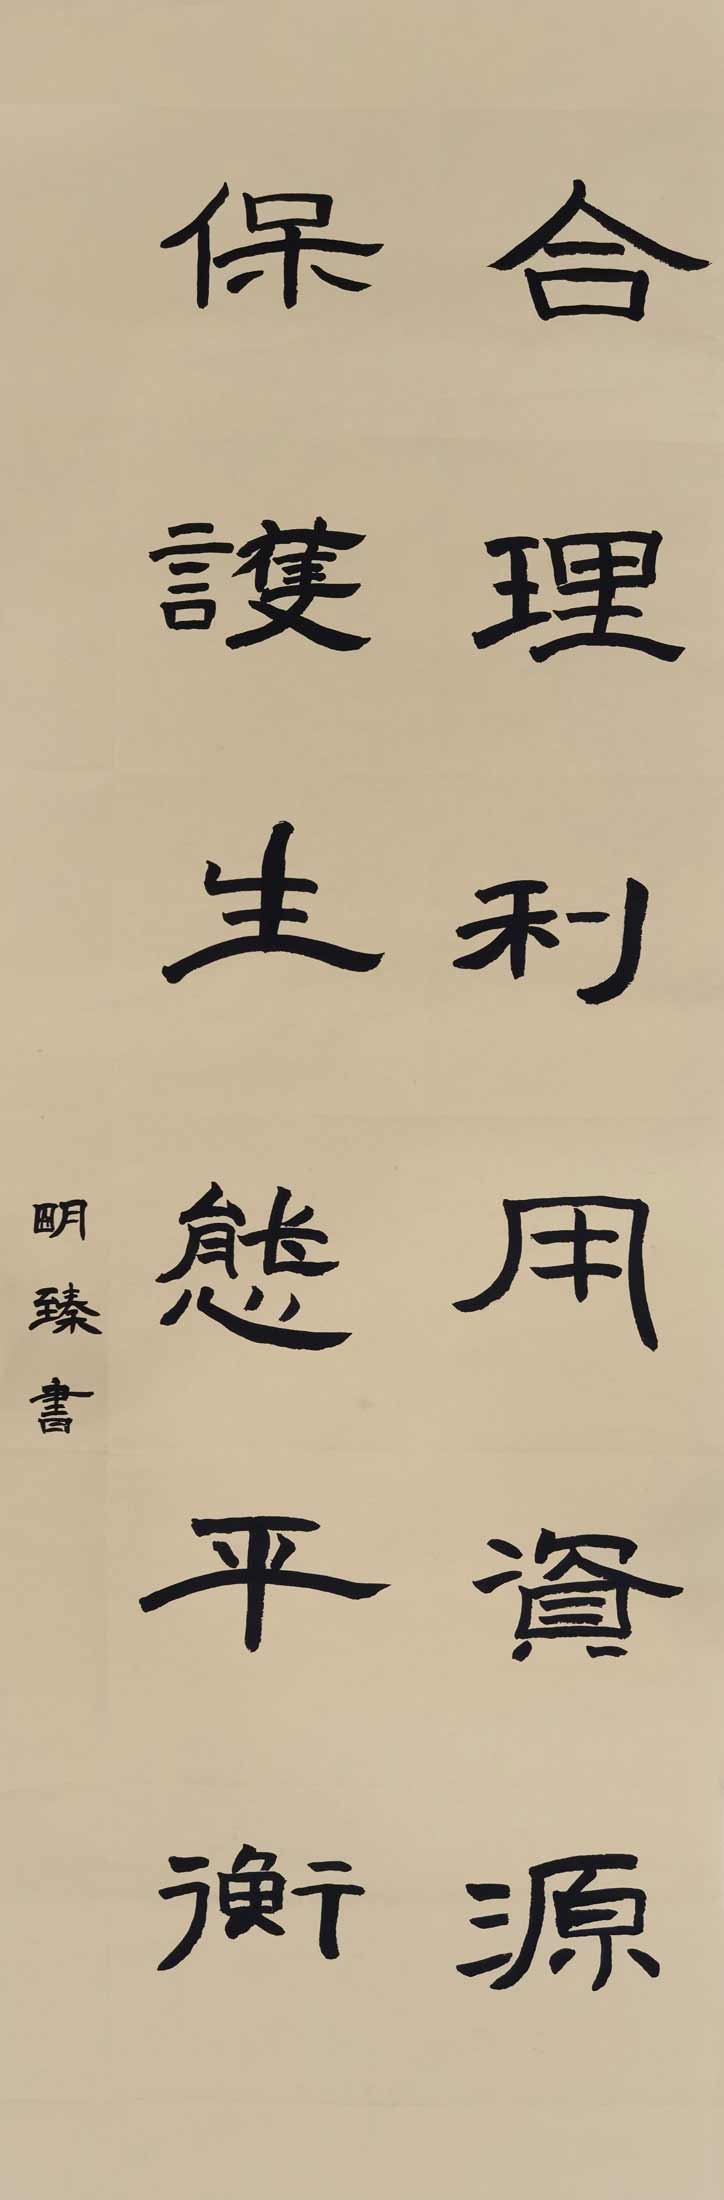 合理利用資源
保護生態平衡
明臻書